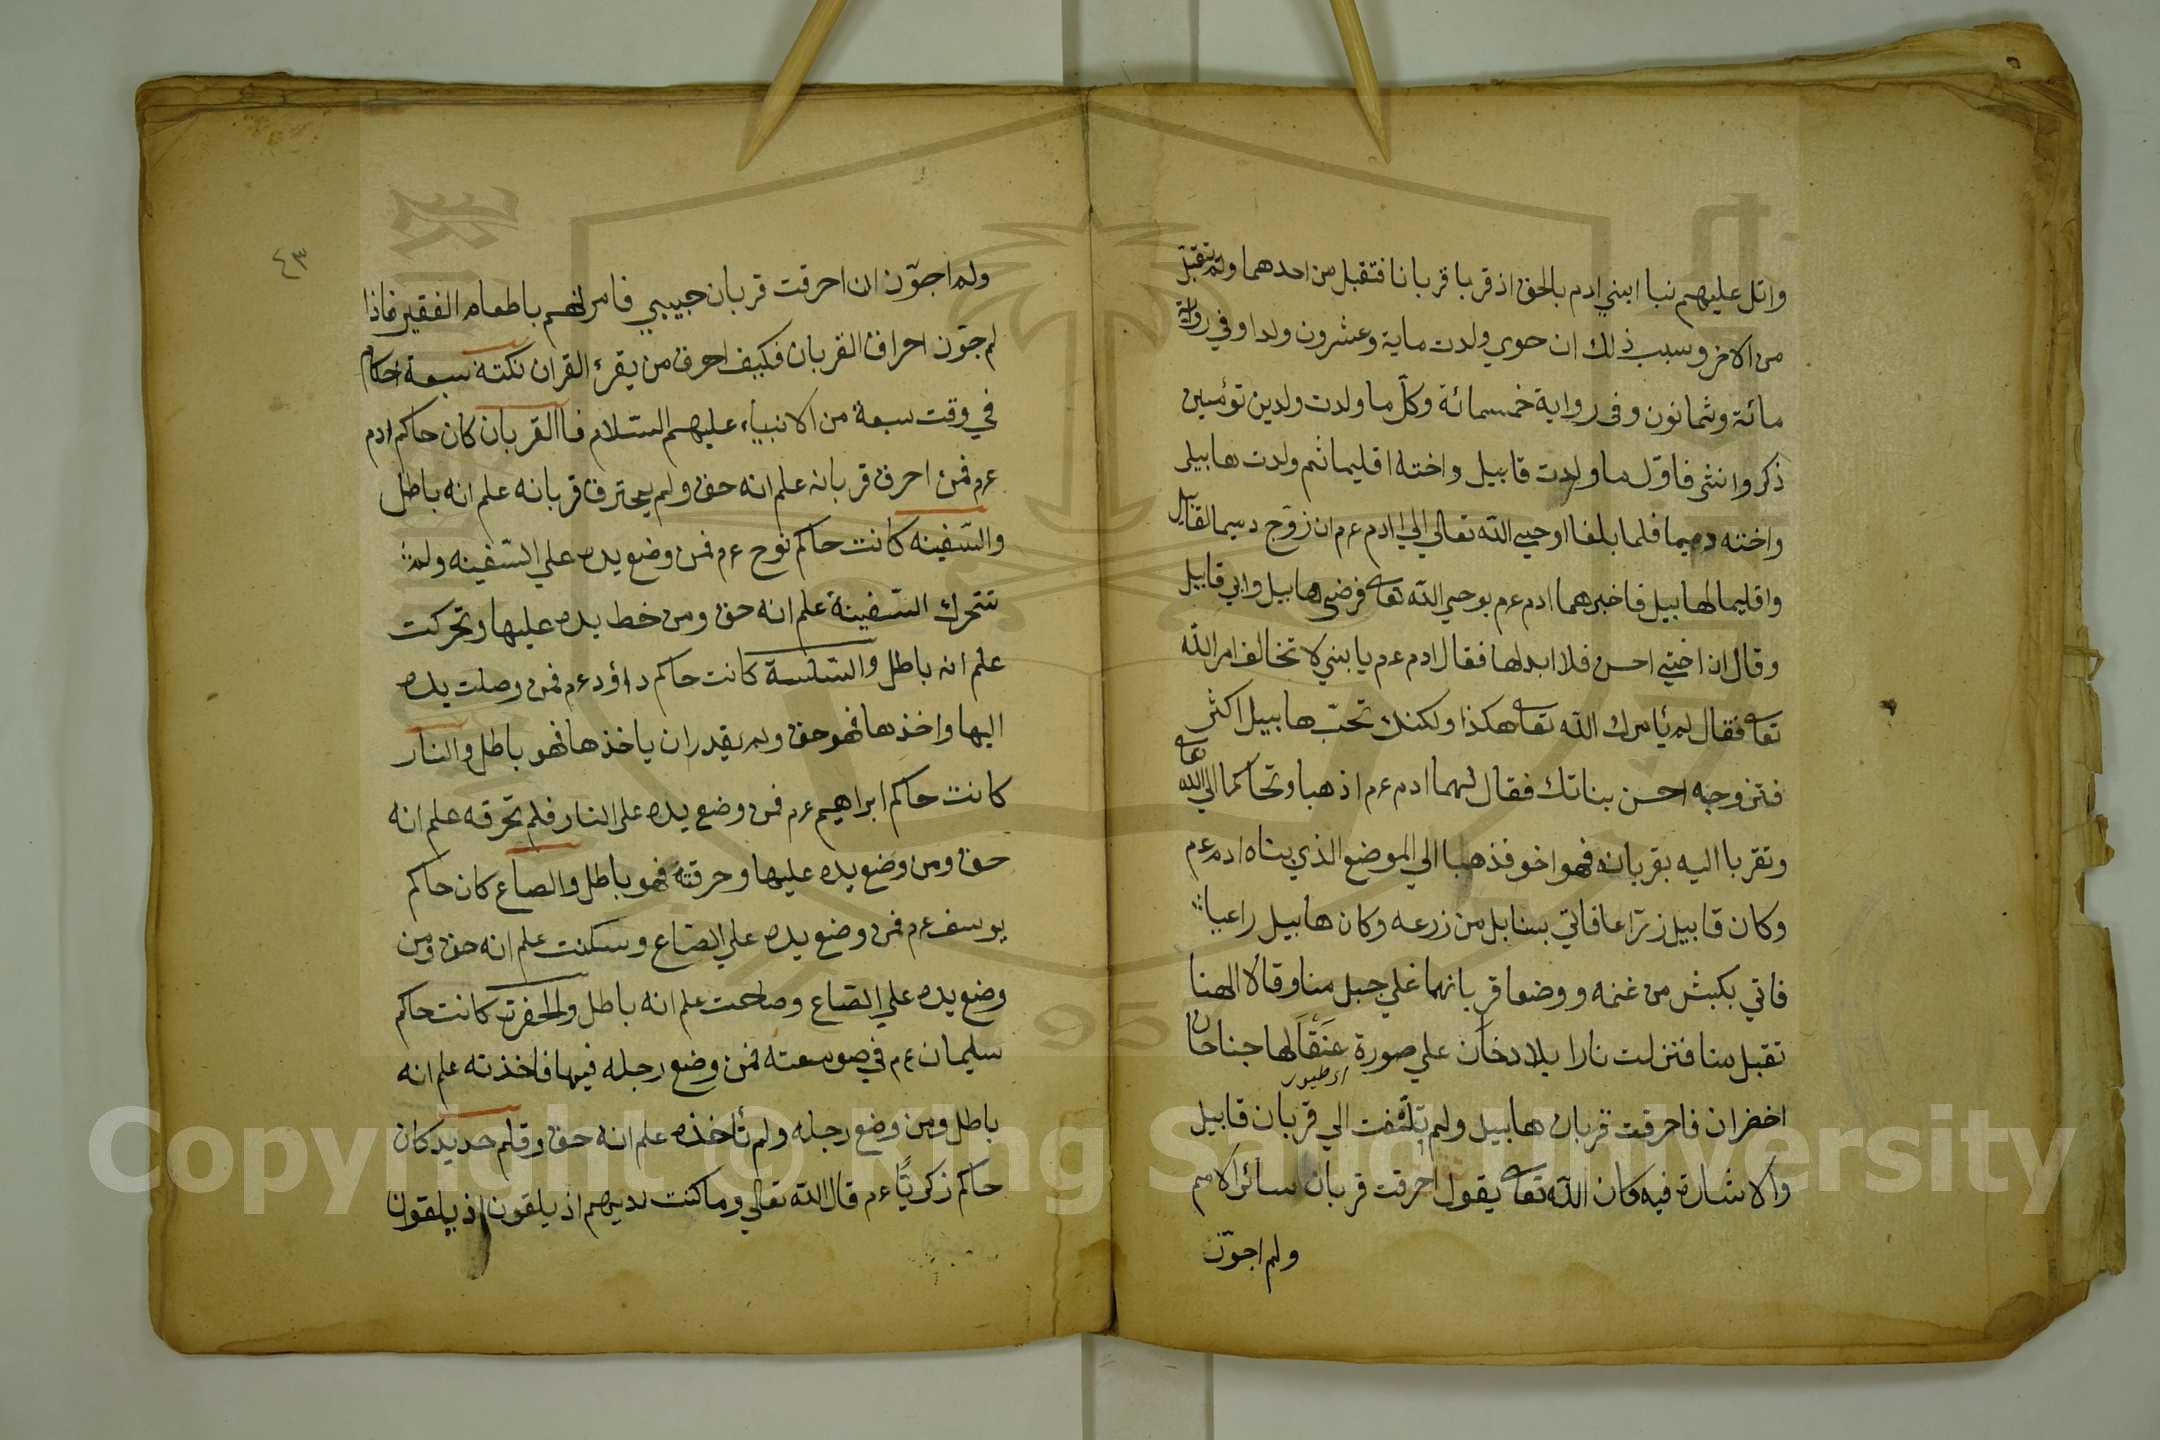 واتل عليهم نبا ابني ادم بالحق اذ قربا قربانا فتقبل من احدهما ولم يتقبل
من الاخر وسبب ذلك ان حوي ولدت ماية وعشرون ولدا وفي رواية
مائة وثمانون وفى رواية خمسمائة وكل ما ولدت ولدين توئمين
ذكر وانثى فاول ما ولدت قابيل واخته اقليما ثم ولدت هابيل
واخته دميما فلما بلغا اوحي الله تعالي الي ادم عم ان زوج دميما لقابيل
واقليما لهابيل فاخبرهما ادم عم بوحي الله تعا فرضي هابيل وابي قابيل
وقال ان اختي احسن فلا ابدلها فقال ادم عم يا بني لا تخالف امر الله
تعا فقال لم يأمرك الله تعا هكذا ولكنك تحب هابيل اكثر
فتزوجه احسن بناتك فقال لهما ادم عم اذهبا وتحاكما الي الله تعا
وتقربا اليه بقربانه فهو اخو فذهبا الي الموضع الذي بناه ادم عم
وكان قابيل زراعا فاتي بسنابل من زرعه وكان هابيل راعيا
فاتي بكبش من غنمه ووضعا قربانهما علي جبل منا وقالا الهنا
تقبل منا فنزلت نارا بلا دخان علي صورة عَنَقَا لها جناحان
اخضران فاحرقت قربان هابيل ولم تلتفت الي قربان قابيل
والاشارة فيه كان الله تعا يقول احرقت قربان سائر الامم
ولم اجوز
٤٣
ولم اجوز ان احرقت قربان حبيبي فامرلهم باطعام الفقير فاذا
لم جوز احراق القربان فكيف احرق من يقرء القران نكتة سبعة احكام
في وقت سبعة من الانبياء عليهم السلام فاالقربان كان حاكم ادم
عم فمن احرق قربانه علم انه حق ولم يحترق قربانه علم انه باطل
والسفينه كانت حاكم نوح عم فمن وضع يده علي السفينه ولم
تتحرك السفينة علم انه حق ومن خط يده عليها وتحركت
علم انه باطل والسلسة كانت حاكم داؤد عم فمن وصلت يده
اليها واخذها فهو حق ولم يقدر ان ياخذها فهو باطل والنار
كانت حاكم ابراهيم عم فمن وضع يده على النار فلم تحرقه علم انه
حق ومن وضع يده عليها وحرقته فهو باطل والصاع كان حاكم
يوسف عم فمن وضع يده علي الصاع وسكنت علم انه حق ومن
وضع يده علي الصاع وصاحت علم انه باطل والحفرة كانت حاكم
سليمان عم في صومعته فمن وضع رجله فيها فاخذته علم انه
باطل ومن وضع رجله ولم تأخذه علم انه حق وقلم حديد كان
حاكم زكريا عم قال الله تعالي وما كنت لديهم اذ يلقون اذ يلقون
Copyright © King Saud University